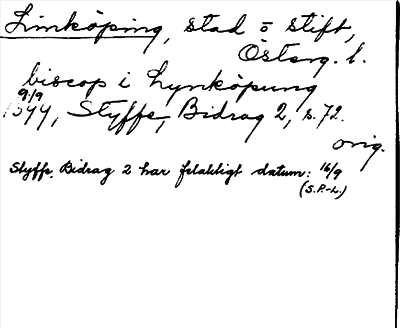 Linköping, stad o stift,
Österg. l.
biscop i Lynköpung
9/9
1399, Styffe, Bidrag 2, s. 72.
orig.
Styffe, Bidrag 2 har felaktigt datum: 16/9
(S.P.-L.)